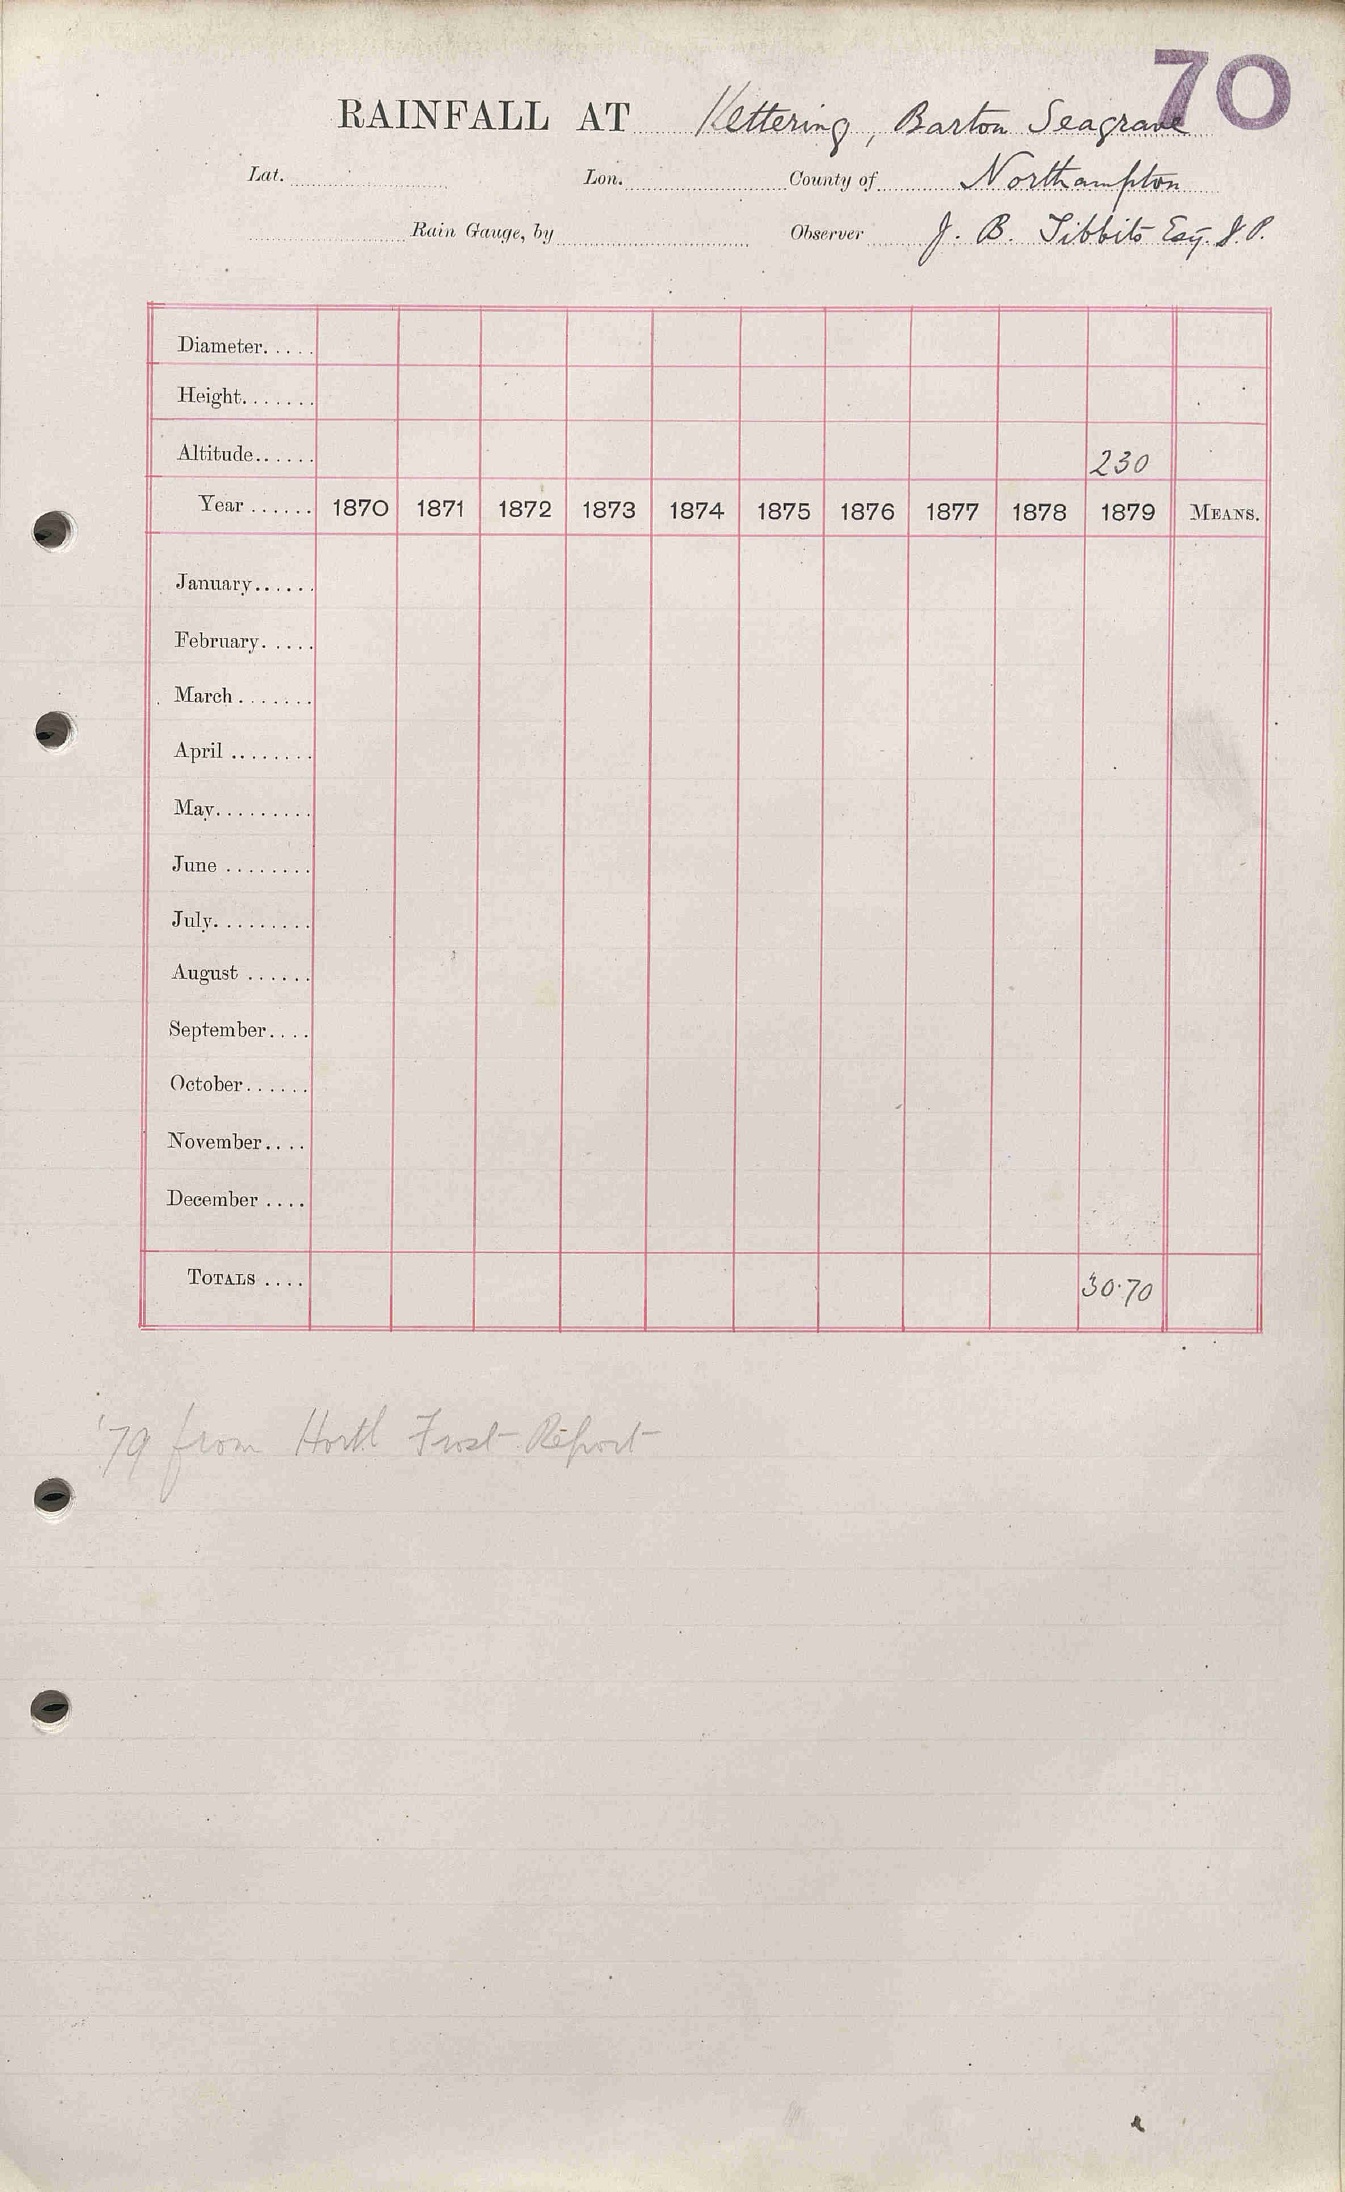 70
RAINFALL AT Kettering, Barton Seagrave
Lat. Lon. County of Northampton
Rain Gauge, by Observer J. B. Tibbits Esq. J.P.
Diameter.....
Height.......
Altitude...... 230
Year ...... 1870 1871 1872 1873 1874 1875 1876 1877 1878 1879 MEANS.
January......
February.....
March .......
April ........
May.........
June ........
July.........
August ......
September....
October......
November....
December ....
TOTALS .... 30.70
'79 from Hortl Frost Report